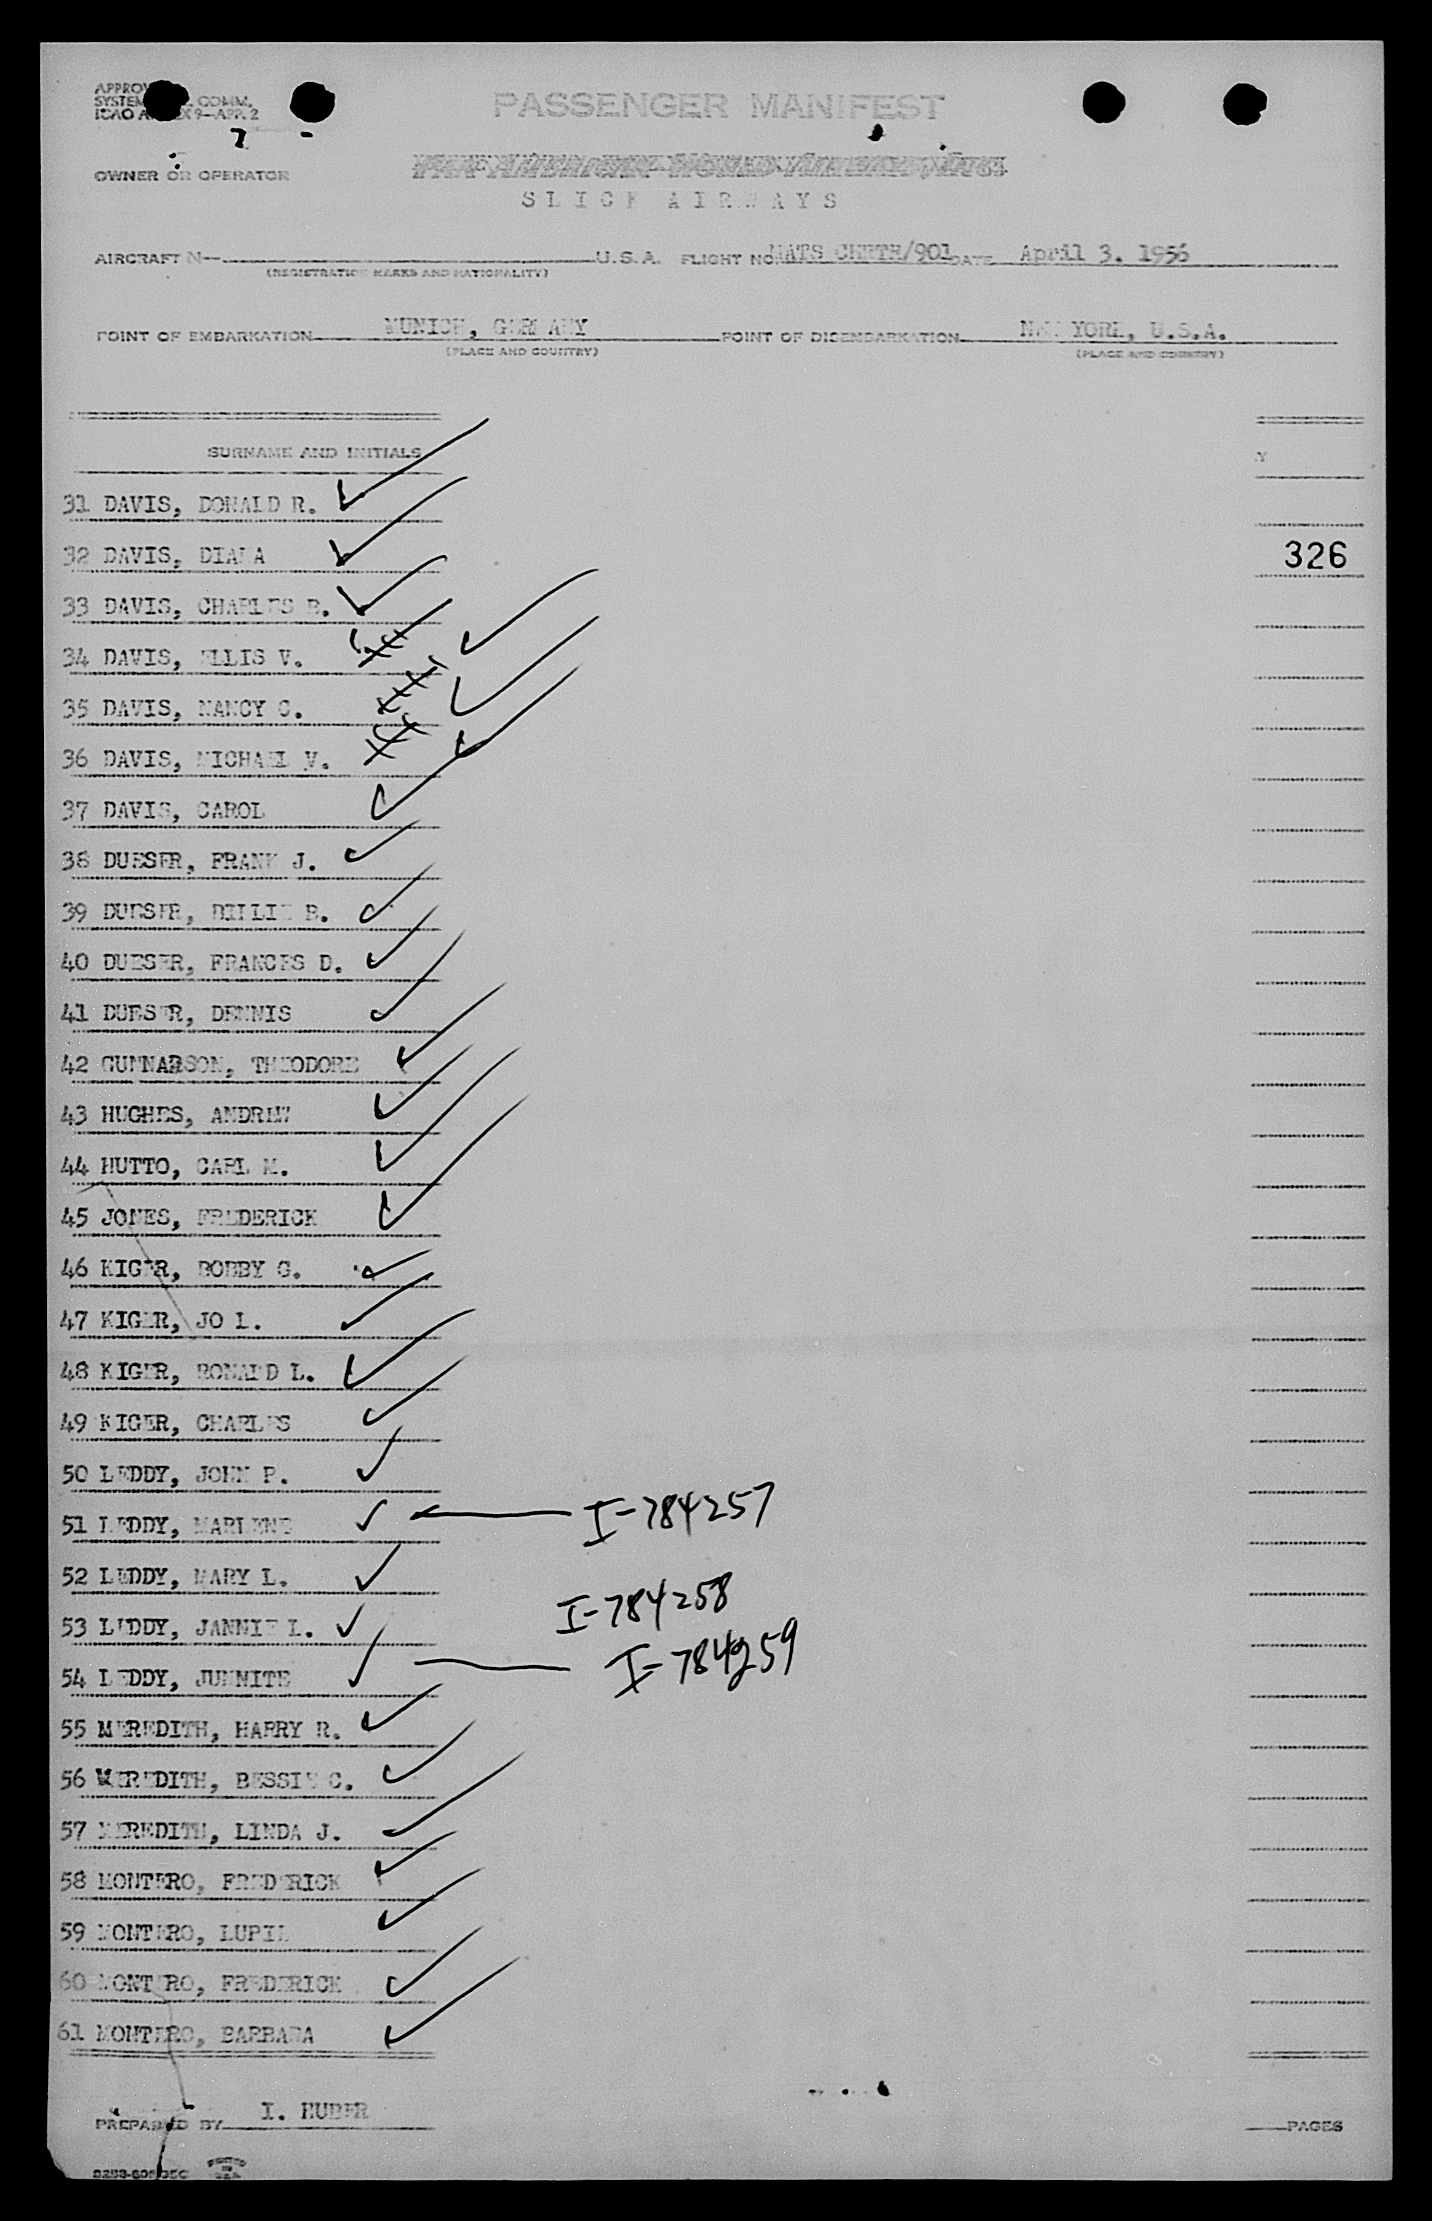 PASSENGER MANIFEST
OWNER OR OPERATOR
SLICK AIRWAYS
AIRCRAFT N— U.S.A. FLIGHT NO. MATS /901 DATE April 3. 1956
(REGISTRATION MARKS AND NATIONALITY)
POINT OF EMBARKATION MUNICH, GERMANY POINT OF DISEMBARKATION NEW YORK, U.S.A.
(PLACE AND COUNTRY) (PLACE AND COUNTRY)
SURNAME AND INITIALS Y
31 DAVIS, DONALD R.
32 DAVIS, DIANA 326
33 DAVIS, CHARLES B.
34 DAVIS, ELLIS V.
35 DAVIS, NANCY C.
36 DAVIS, MICHAEL V.
37 DAVIS, CAROL
38 DUESER, FRANK J.
39 DUESER, BILLIE B.
40 DUESER, FRANCES D.
41 DUESER, DENNIS
42 GUNNARSON, THEODORE
43 HUGHES, ANDREW
44 HUTTO, CARL M.
45 JONES, FREDERICK
46 KIGER, BOBBY G.
47 KIGER, JO L.
48 KIGER, RONALD L.
49 KIGER, CHARLES
50 LEDDY, JOHN P.
51 LEDDY, MARLENE I-784257
52 LEDDY, MARY L.
I-784258
53 LEDDY, JANNIE L.
54 LEDDY, JUENITE I-784259
55 MEREDITH, HARRY R.
56 MEREDITH, BESSIE C.
57 MEREDITH, LINDA J.
58 MONTERO, FREDERICK
59 MONTERO,
60 MONTERO, FREDERICK
61 MONTERO, BARBARA
PREPARED BY I. HUBER PAGES